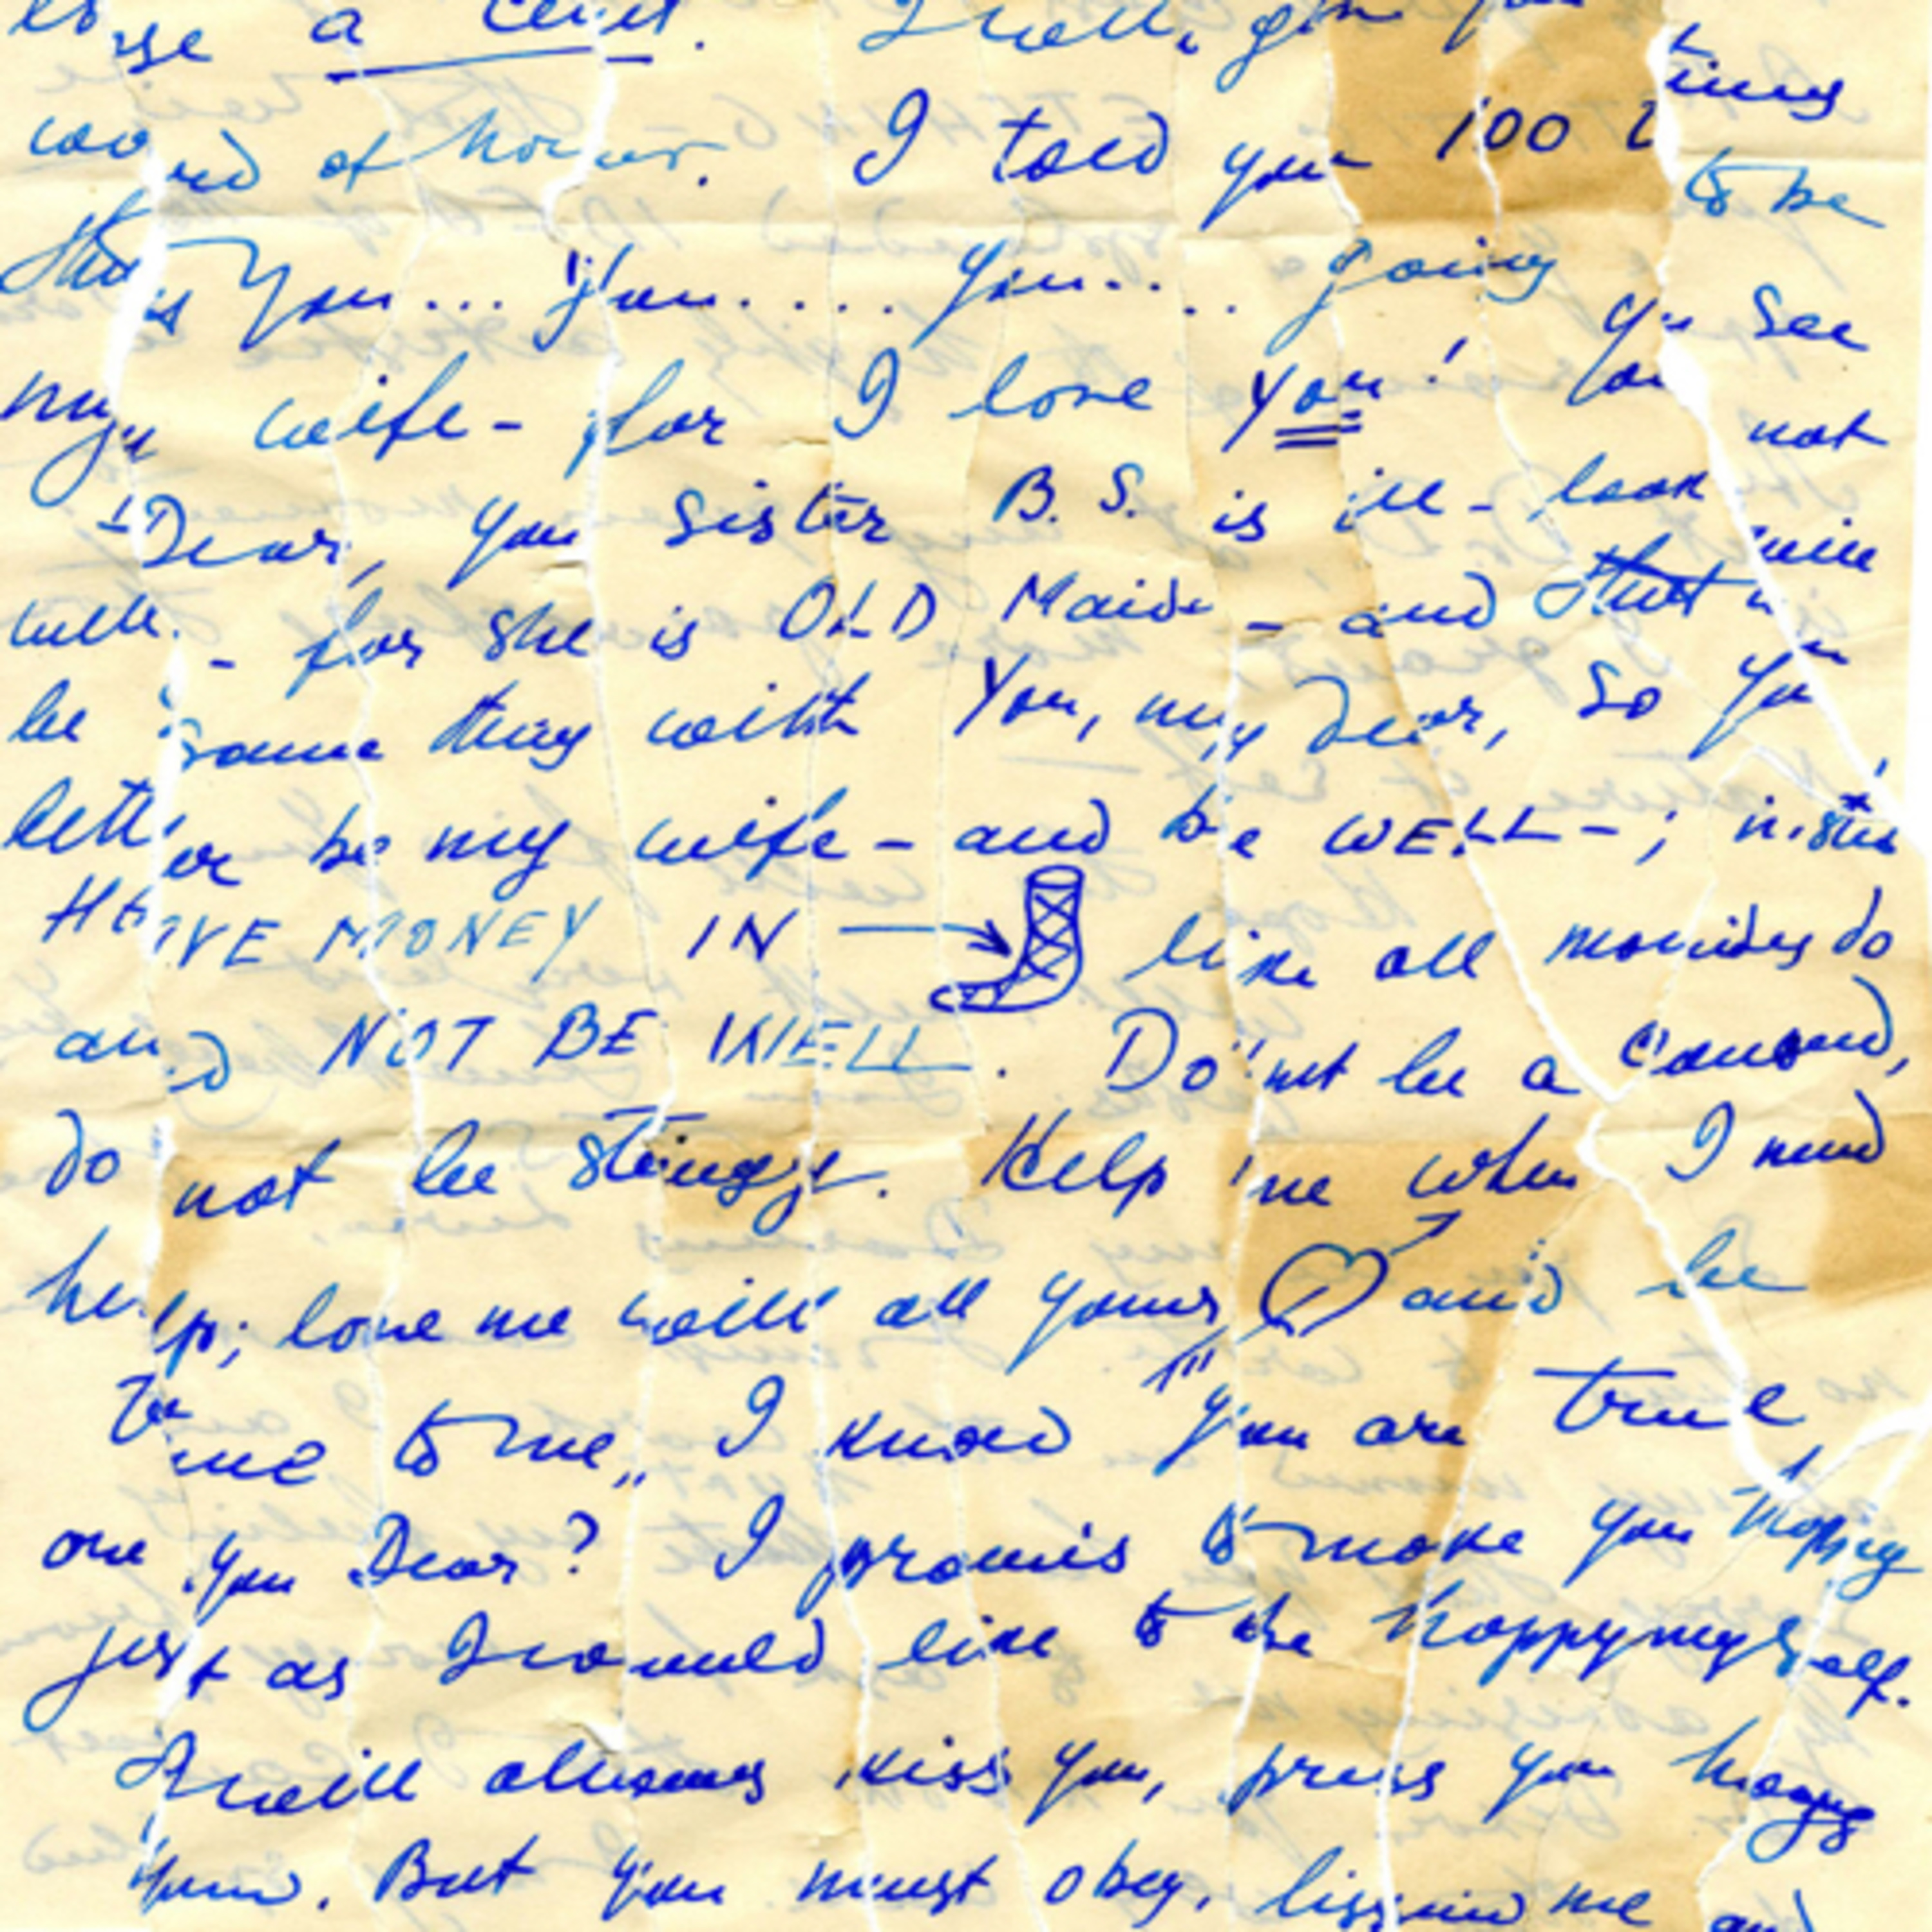 lose a cent. I will give you
word of honor. I told you 100 times
that is you... you.... you.... going to be
my wife - for I love you! You see
Dear, you sister B.S. is ill - look not
well. - for she is OLD Maide - and that will
be same thing with you, my dear, so you
better be my wife - and be WELL -;
HAVE MONEY IN like all do
and NOT BE WELL. Do'nt be a coward,
do not be stingy. Help me when I need
help; love me with all yours and be
true to me,, I know you are true,
are you Dear? I promis to make you happy
just as I would like to be happy myself.
I will allways kiss you, press you
You must obey, me and